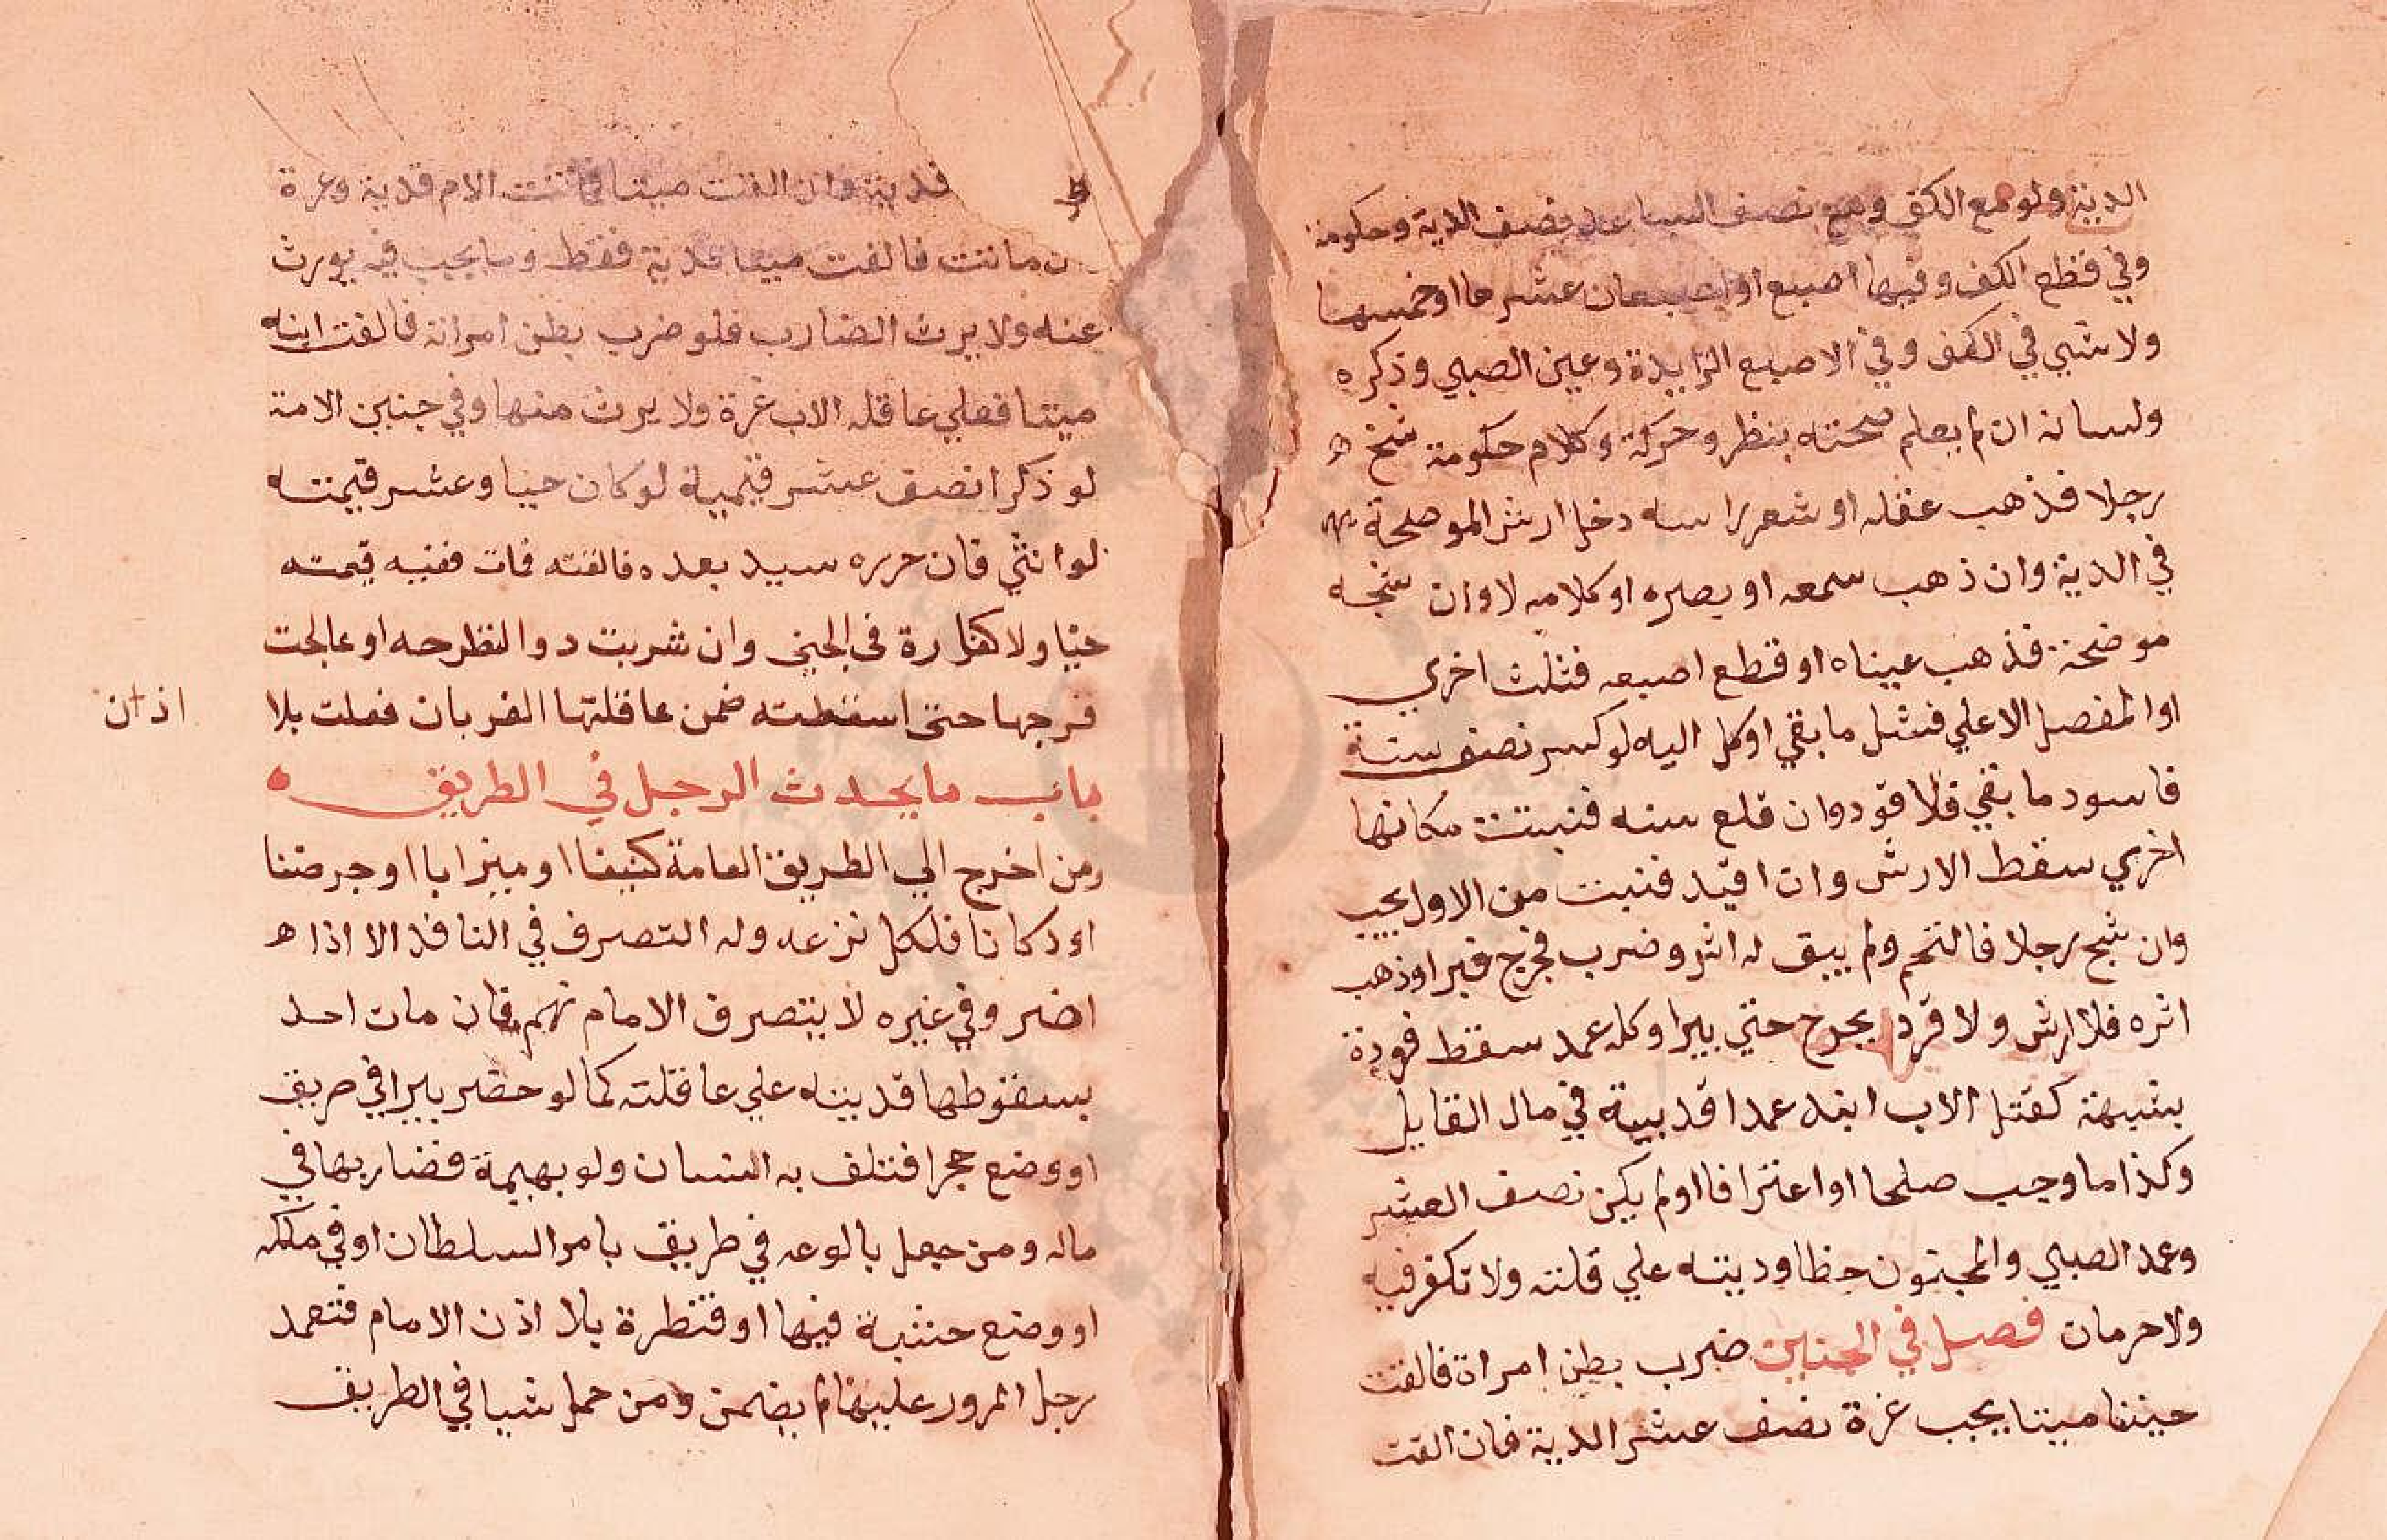 الدية ولو مع الكف ومع نصف الساعد نصف الدية وحكومة
وفي قطع الكف وفيها اصبع او اصبعان عشرها او خمسها
ولا شي في الكف وفي الاصبع الزايدة وعين الصبي وذكره
ولسانه ان لم يعلم صحته بنظر وحركة وكلام حكومة شج
رجلا فذهب عقله او شعر راسه دخل ارش الموضحة
في الدية وان ذهب سمعه او بصره او كلامه لا وان شجه
موضحة فذهب عيناه او قطع اصبعه فشلت اخري
او المفصل الاعلي فشل ما بقي او كل اليد لو كسر نصف سنة
فاسود ما بقي فلا قود وان قلع سنه فنبتت مكانها
اخري سقط الارش وان اقيد فنبت من الاول يجب
وان شج رجلا فالتحم ولم يبق له اثر وضرب فجرح فبرا وذهب
اثره فلا ارش ولا قود بجرح حتي يبرا وكل عمد سقط قوده
بشبهة كقتل الاب ابنه عمدا فدية في مال القاتل
وكذا ما وجب صلحا او اعترافا او لم يكن نصف العشر
وعمد الصبي والمجنون خطا وديته علي قلته ولا تكفر فيه
ولا حرمان فصل في الجنين ضرب بطن امراة فالقت
جنينا ميتا يجب غرة نصف عشر الدية فان القت
فدية وان القت ميتا فماتت الام فدية وغرة
ن ماتت فالقت ميتا فدية فقط وما يجب فيه يورث
عنه ولا يرث الضارب فلو ضرب بطن امراته فالقت ابنه
ميتا فعلي عاقله الاب غرة ولا يرث منها وفي جنين الامة
لو ذكرا نصف عشر قيمية لو كان حيا وعشر قيمته
لو انثي فان حرره سيد بعده فالقته فمات ففيه قيمته
حيا ولا كفارة في الجنين وان شربت دوا لتطرحه او عالجت
فرجها حتي اسقطته ضمن عاقلتها الغر بان فعلت بلا
اذان
باب ما يحدث الرجل في الطريق
ومن اخرج الي الطريق العامة كنيفا او ميزابا او جرصنا
او دكانا فلكل نزعه وله التصرف في النافذ الا اذا
اضر وفي غيره لا يتصرف الامام نهم فان مات احد
بسقوطها فديته علي عاقلته كما لو حضر بيرا في طريق
او وضع حجرا فتلف به انسان ولو بهيمة فضاربها في
ماله ومن جعل بالوعه في طريق بامر السلطان او في ملكه
او وضع خشبة فيها او قنطرة بلا اذن الامام فتعمد
رجل المرور عليها لم يضمن ومن حمل شيا في الطريق